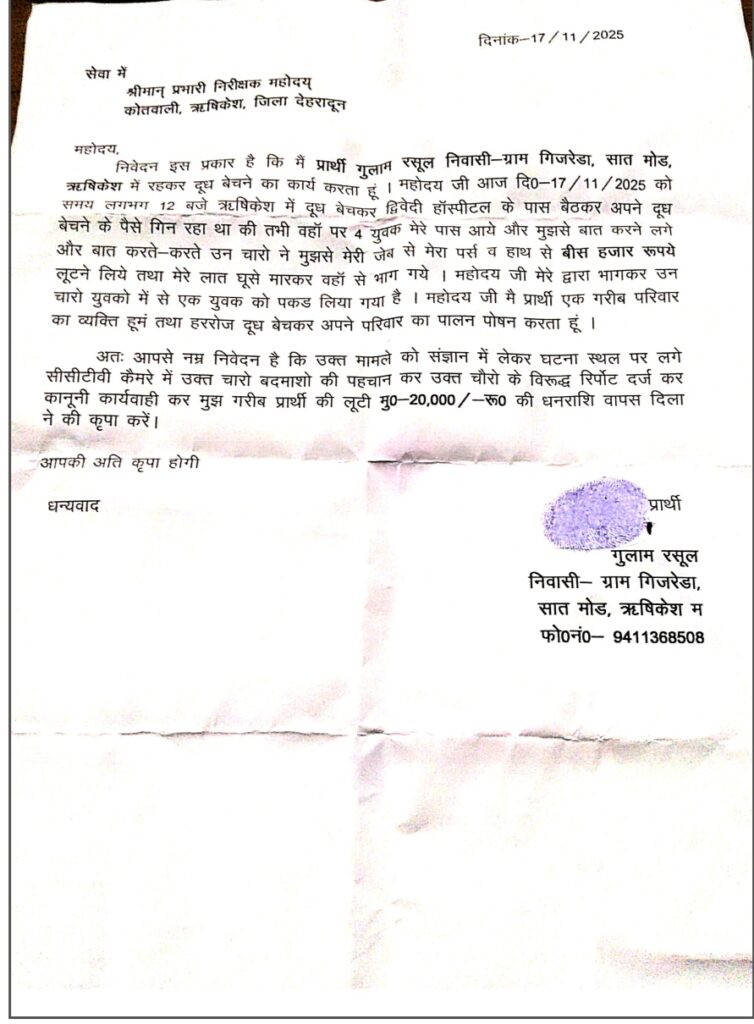 दिनांक–17/11/2025
सेवा में
श्रीमान् प्रभारी निरीक्षक महोदय्
कोतवाली, ऋषिकेश, जिला देहरादून
महोदय,
निवेदन इस प्रकार है कि मैं प्रार्थी गुलाम रसूल निवासी–ग्राम गिजरेडा, सात मोड,
ऋषिकेश में रहकर दूध बेचने का कार्य करता हूं । महोदय जी आज दि0–17/11/2025 को
समय लगभग 12 बजे ऋषिकेश में दूध बेचकर द्विवेदी हॉस्पीटल के पास बैठकर अपने दूध
बेचने के पैसे गिन रहा था की तभी वहॉ पर 4 युवक मेरे पास आये और मुझसे बात करने लगे
और बात करते–करते उन चारो ने मुझसे मेरी जेब से मेरा पर्स व हाथ से बीस हजार रूपये
लूटने लिये तथा मेरे लात घूसे मारकर वहॉ से भाग गये । महोदय जी मेरे द्वारा भागकर उन
चारो युवको में से एक युवक को पकड लिया गया है । महोदय जी मै प्रार्थी एक गरीब परिवार
का व्यक्ति हूमं तथा हररोज दूध बेचकर अपने परिवार का पालन पोषन करता हूं ।
अतः आपसे नम्र निवेदन है कि उक्त मामले को संज्ञान में लेकर घटना स्थल पर लगे
सीसीटीवी कैमरे में उक्त चारो बदमाशो की पहचान कर उक्त चौरो के विरूद्ध रिर्पोट दर्ज कर
कानूनी कार्यवाही कर मुझ गरीब प्रार्थी की लूटी मु0–20,000/–रू0 की धनराशि वापस दिला
ने की कृपा करें।
आपकी अति कृपा होगी
धन्यवाद
प्रार्थी
गुलाम रसूल
निवासी– ग्राम गिजरेडा,
सात मोड, ऋषिकेश म
फो0नं0– 9411368508